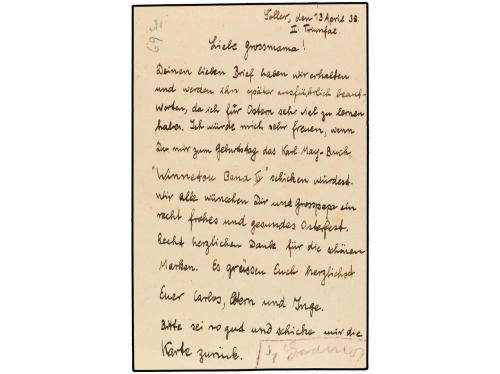 Soller, den 13 April 38.
II. Triunfal.
Liebe Grossmama!
Deinen lieben Brief haben wir erhalten
und werden ihn später ausführlich beant-
worten, da ich für Ostern sehr viel zu lernen
habe. Ich würde mich sehr freuen, wenn
Du mir zum Geburtstag das Karl May-Buch
"Winnetou Band IV" schicken würdest.
Wir alle wünschen Dir und Grosspapa ein
recht frohes und gesundes Osterfest.
Recht herzlichen Dank für die schönen
Marken. Es grüssen Euch herzlichst
Euer Carlos, Eltern und Inge.
Bitte sei so gut und schicke mir die
Karte zurück.